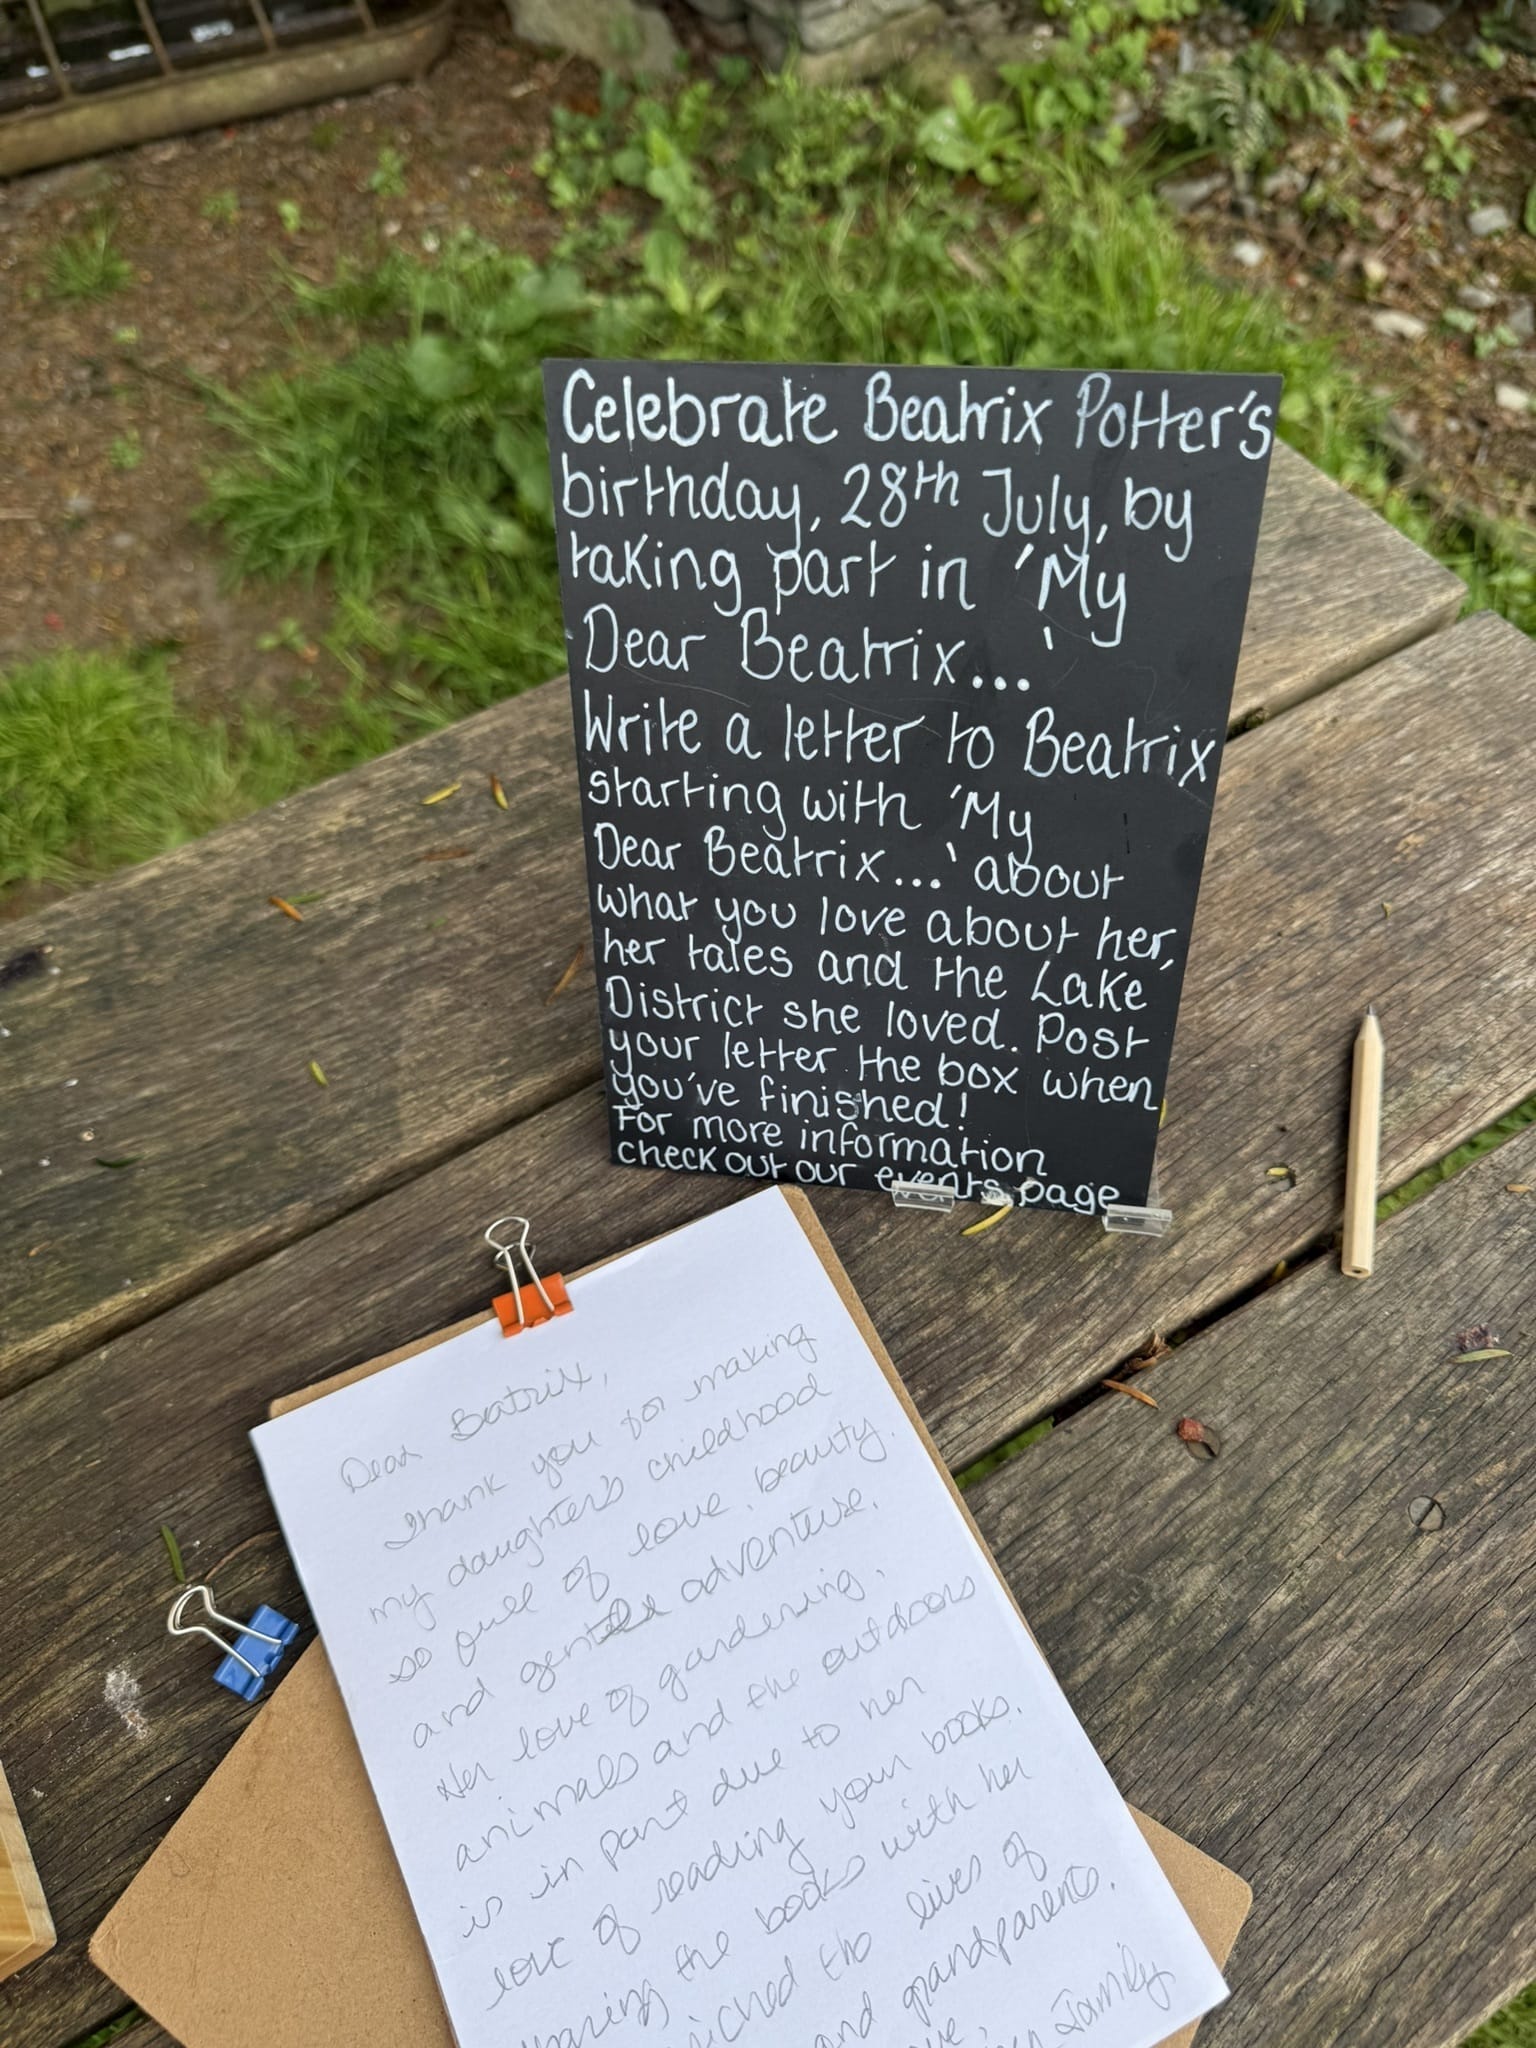 Celebrate Beatrix Potter's
birthday, 28th July, by
taking part in 'My
Dear Beatrix...'
Write a letter to Beatrix
starting with 'My
Dear Beatrix...' about
what you love about her,
her tales and the Lake
District she loved. Post
your letter the box when
you've finished!
For more information
check out our events page
Dear Beatrix,
Thank you for making
my daughter's childhood
so full of love, beauty,
and gentle adventure.
Her love of gardening,
animals and the outdoors
is in part due to her
love of reading your books.
the books with her
the lives of
and grandparents.
Family